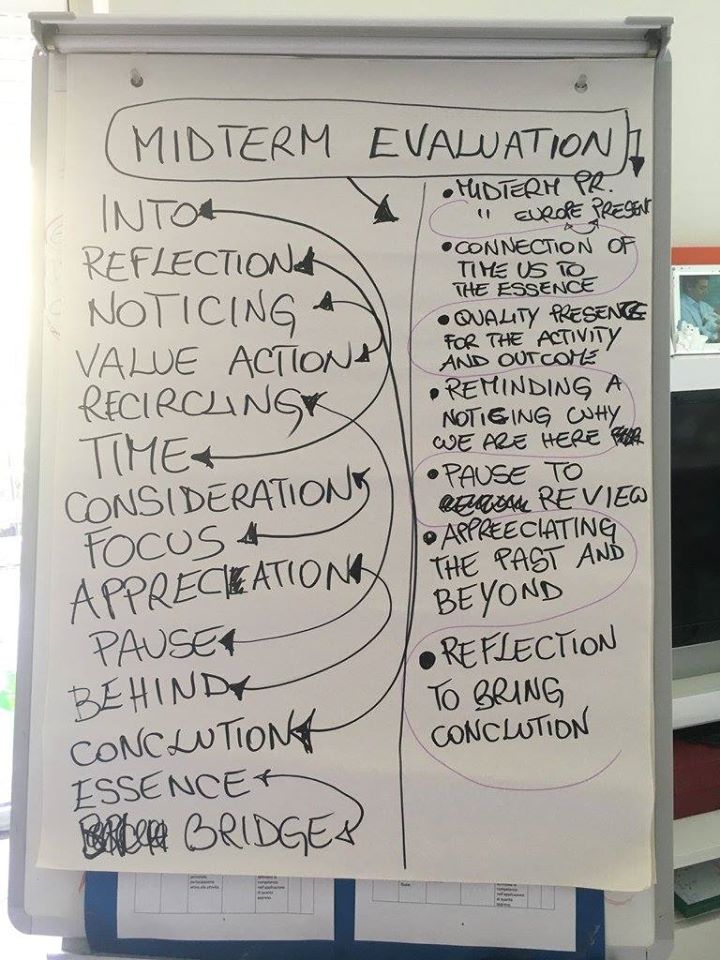 MIDTERM EVALUATION
INTO
REFLECTION
NOTICING
VALUE ACTION
RECIRCLING
TIME
CONSIDERATION
FOCUS
APPRECIATION
PAUSE
BEHIND
CONCLUTION
ESSENCE
BRIDGE
• MIDTERM PR.
" EUROPE PRESENT
• CONNECTION OF
TIME US TO
THE ESSENCE
• QUALITY PRESENCE
FOR THE ACTIVITY
AND OUTCOME
• REMINDING A
NOTICING WHY
WE ARE HERE
• PAUSE TO
REVIEW
• APPREECIATING
THE PAST AND
BEYOND
• REFLECTION
TO BRING
CONCLUTION